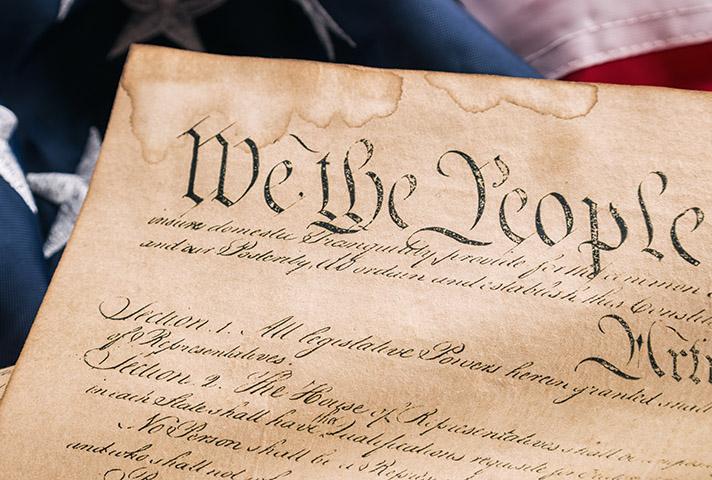 We the People
insure domestic Tranquility, provide for the common
and our Posterity, do ordain and establish this Constit
Arti
Section. 1. All legislative Powers herein granted shall
of Representatives.
Section. 2. The House of Representatives shall be compos
in each State shall have the Qualifications requisite for
No Person shall be a Repres
and who shall not